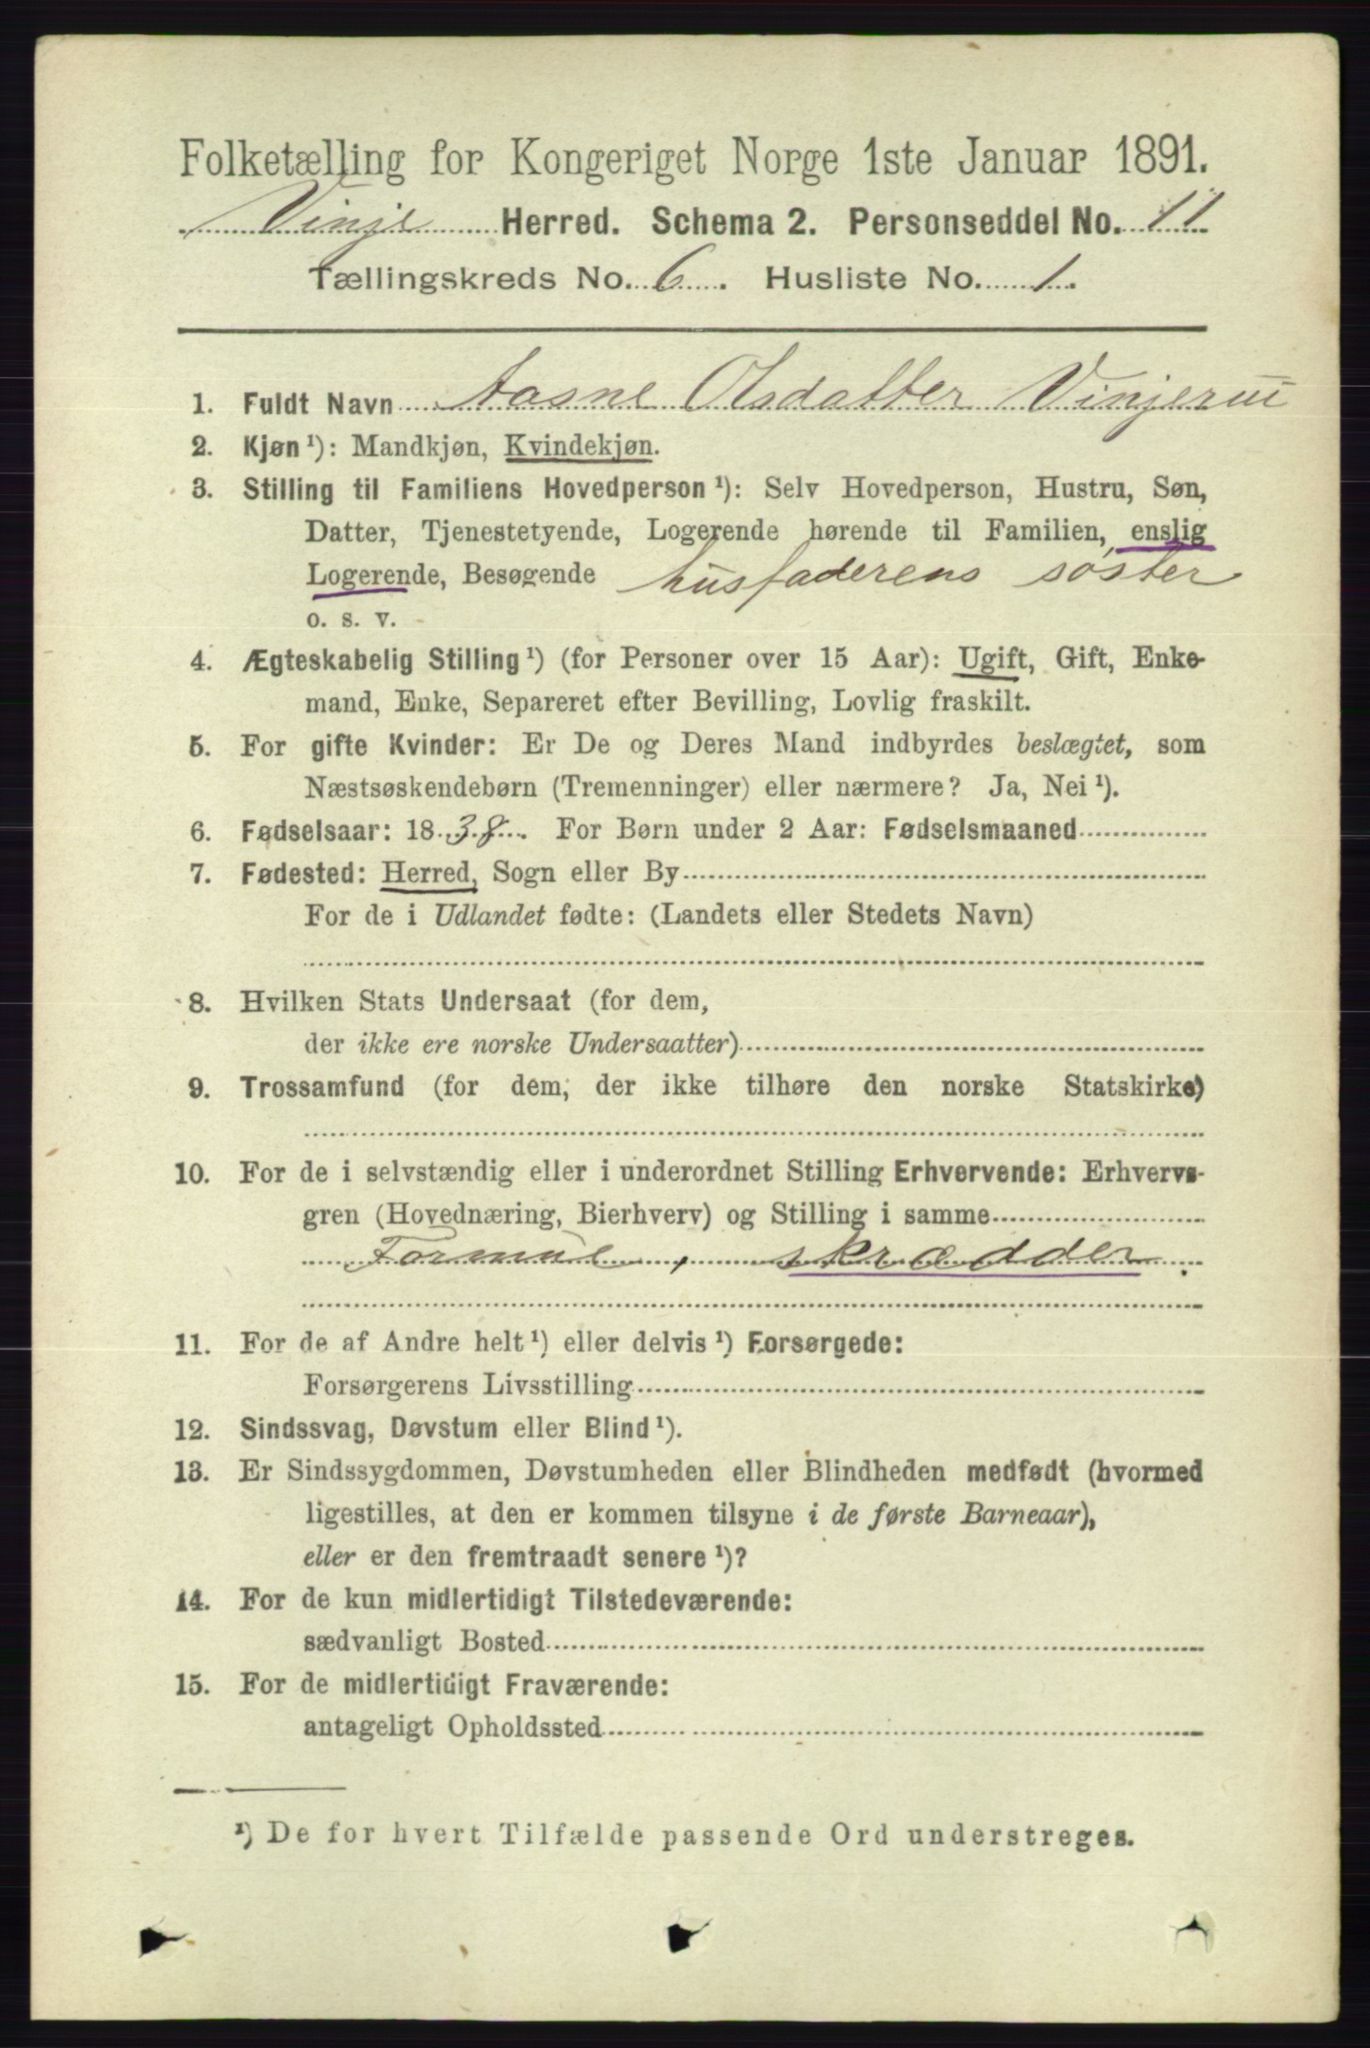 Folketælling for Kongeriget Norge 1ste Januar 1891.
Vinje Herred. Schema 2. Personseddel No. 11
Tællingskreds No. 6. Husliste No. 1.
1. Fuldt Navn Aasne Olsdatter Vinjerui
2. Kjøn ¹): Mandkjøn, Kvindekjøn.
3. Stilling til Familiens Hovedperson ¹): Selv Hovedperson, Hustru, Søn,
Datter, Tjenestetyende, Logerende hørende til Familien, enslig
Logerende, Besøgende husfaderens søster
o. s. v.
4. Ægteskabelig Stilling ¹) (for Personer over 15 Aar): Ugift, Gift, Enke-
mand, Enke, Separeret efter Bevilling, Lovlig fraskilt.
5. For gifte Kvinder: Er De og Deres Mand indbyrdes beslægtet, som
Næstsøskendebørn (Tremenninger) eller nærmere? Ja, Nei ¹).
6. Fødselsaar: 1838. For Børn under 2 Aar: Fødselsmaaned
7. Fødested: Herred, Sogn eller By
For de i Udlandet fødte: (Landets eller Stedets Navn)
8. Hvilken Stats Undersaat (for dem,
der ikke ere norske Undersaatter)
9. Trossamfund (for dem, der ikke tilhøre den norske Statskirke)
10. For de i selvstændig eller i underordnet Stilling Erhvervende: Erhvervs-
gren (Hovednæring, Bierhverv) og Stilling i samme
Formue, skrædder.
11. For de af Andre helt ¹) eller delvis ¹) Forsørgede:
Forsørgerens Livsstilling
12. Sindssvag, Døvstum eller Blind ¹).
13. Er Sindssygdommen, Døvstumheden eller Blindheden medfødt (hvormed
ligestilles, at den er kommen tilsyne i de første Barneaar),
eller er den fremtraadt senere ¹)?
14. For de kun midlertidigt Tilstedeværende:
sædvanligt Bosted
15. For de midlertidigt Fraværende:
antageligt Opholdssted
¹) De for hvert Tilfælde passende Ord understreges.